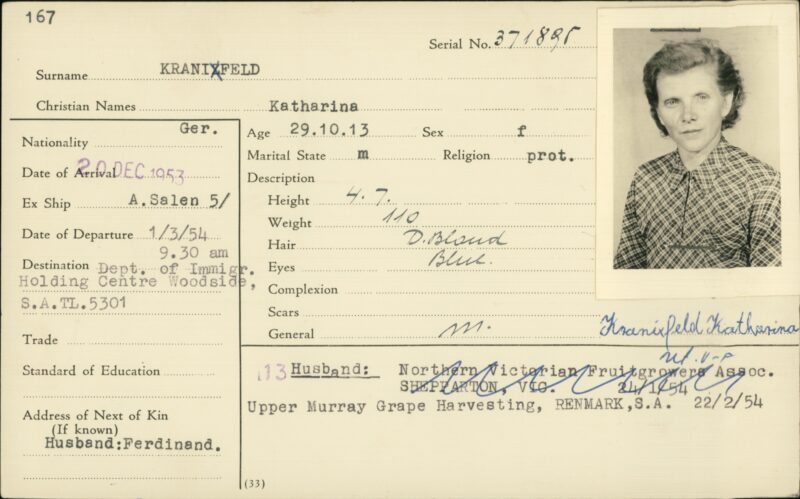 167
Serial No. 371895
Surname KRANIXFELD
Christian Names Katharina
Nationality Ger.
Date of Arrival 20 DEC 1953
Ex Ship A.Salen 5/
Date of Departure 1/3/54
9.30 am
Destination Dept. of Immigr.
Holding Centre Woodside,
S.A.TL.5301
Trade
Standard of Education
Address of Next of Kin
(If known)
Husband:Ferdinand.
Age 29.10.13 Sex f
Marital State m Religion prot.
Description
Height 4. 7.
Weight 110
Hair D.Blond
Eyes Blue.
Complexion
Scars
General m.
Kranixfeld Katharina
113 Husband: Northern Victorian Fruitgrowers Assoc.
SHEPPARTON, VIC. 24/1/54
Upper Murray Grape Harvesting, RENMARK,S.A. 22/2/54
(33)